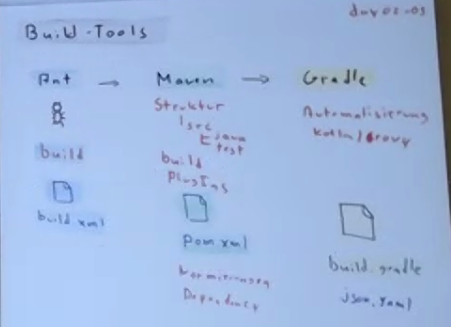 day 02-03
Build-Tools
Ant → Maven → Gradle
Struktur
src
java
test
build
Plugins
Automatisierung
Kotlin/Grovy
build
build.xml
pom.xml
Dependency
build.gradle
json, yaml